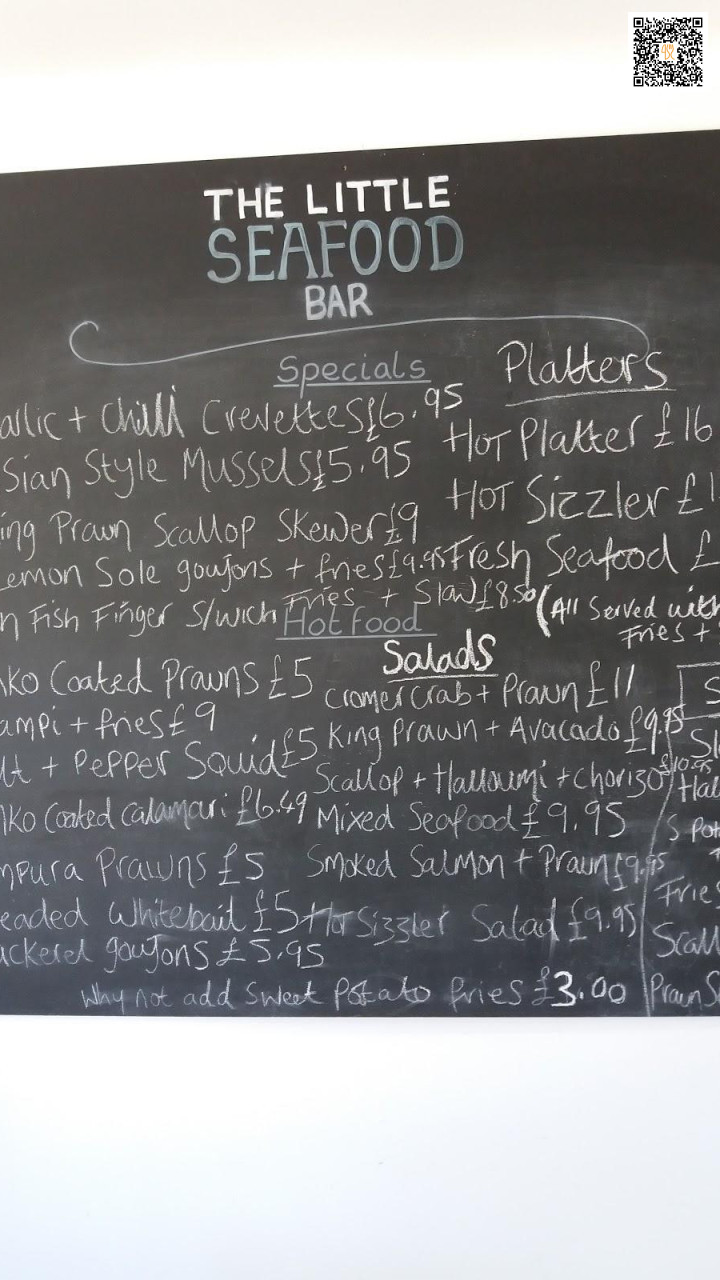 THE LITTLE
SEAFOOD
BAR
Specials
arlic + Chilli Crevettes £6.95
sian Style Mussels £5.95
ing Prawn Scallop Skewer £9
Lemon Sole goujons + fries £9.95
n Fish Finger S/wich Fries + Slaw £8.50
Platters
Hot Platter £16
Hot Sizzler £1
Fresh Seafood £
(All Served with
Fries +
Hot food
nko Coated Prawns £5
ampi + fries £9
lt + Pepper Squid £5
nko Coated calamari £6.49
mpura Prawns £5
eaded Whitebait £5
ackerel goujons £5.95
Salads
cromer crab + Prawn £11
King Prawn + Avacado £9.95
Scallop + Halloumi + chorizo £10.95
Mixed Seafood £9.95
Smoked Salmon + Prawn £9.95
Hot Sizzler Salad £9.95
Why not add Sweet Potato fries £3.00
S
Sl
Hal
S Pot
Fries
Scall
Prawn S